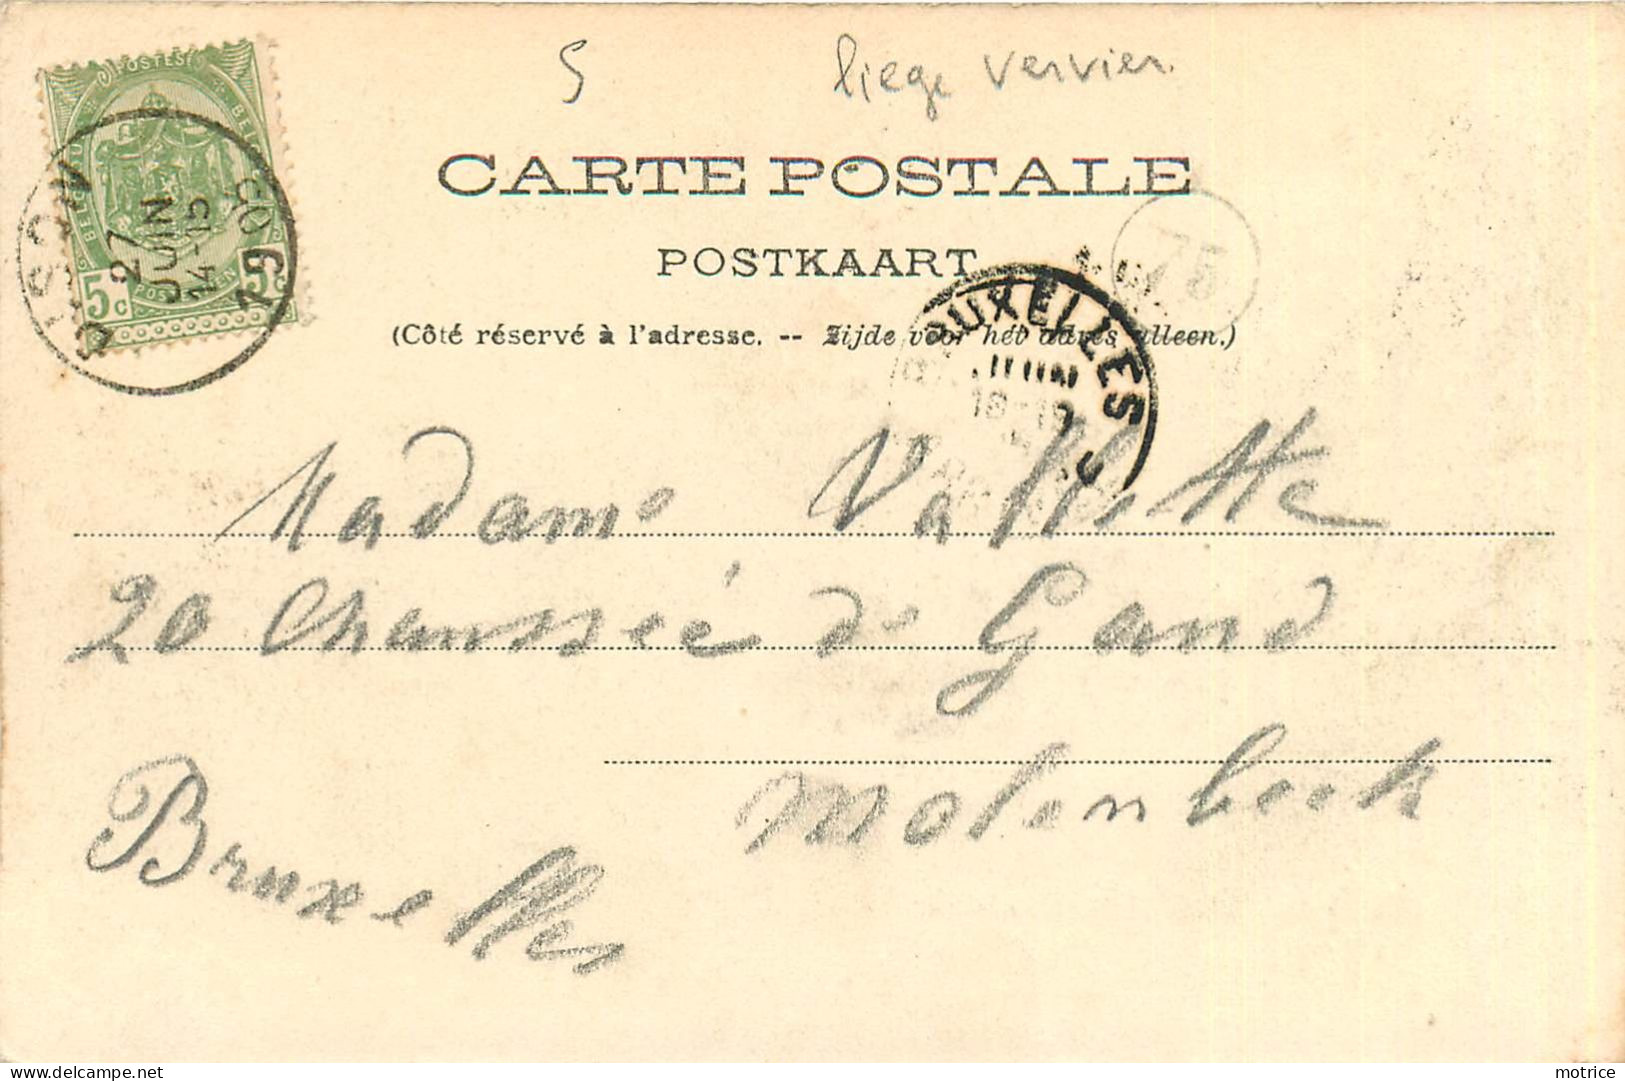 5 liege Vervier.
CARTE POSTALE
POSTKAART
(Côté réservé à l'adresse. -- Zijde voor het adres alleen.)
POSTES
BELGIQUE
5c 5c
DISON
27
JUIN
14-15
1905
75
BRUXELLES
JUIN
Madame Vallette
20 Chaussée de Gand
Molenbeek
Bruxelles
Delcampe.net
motrice